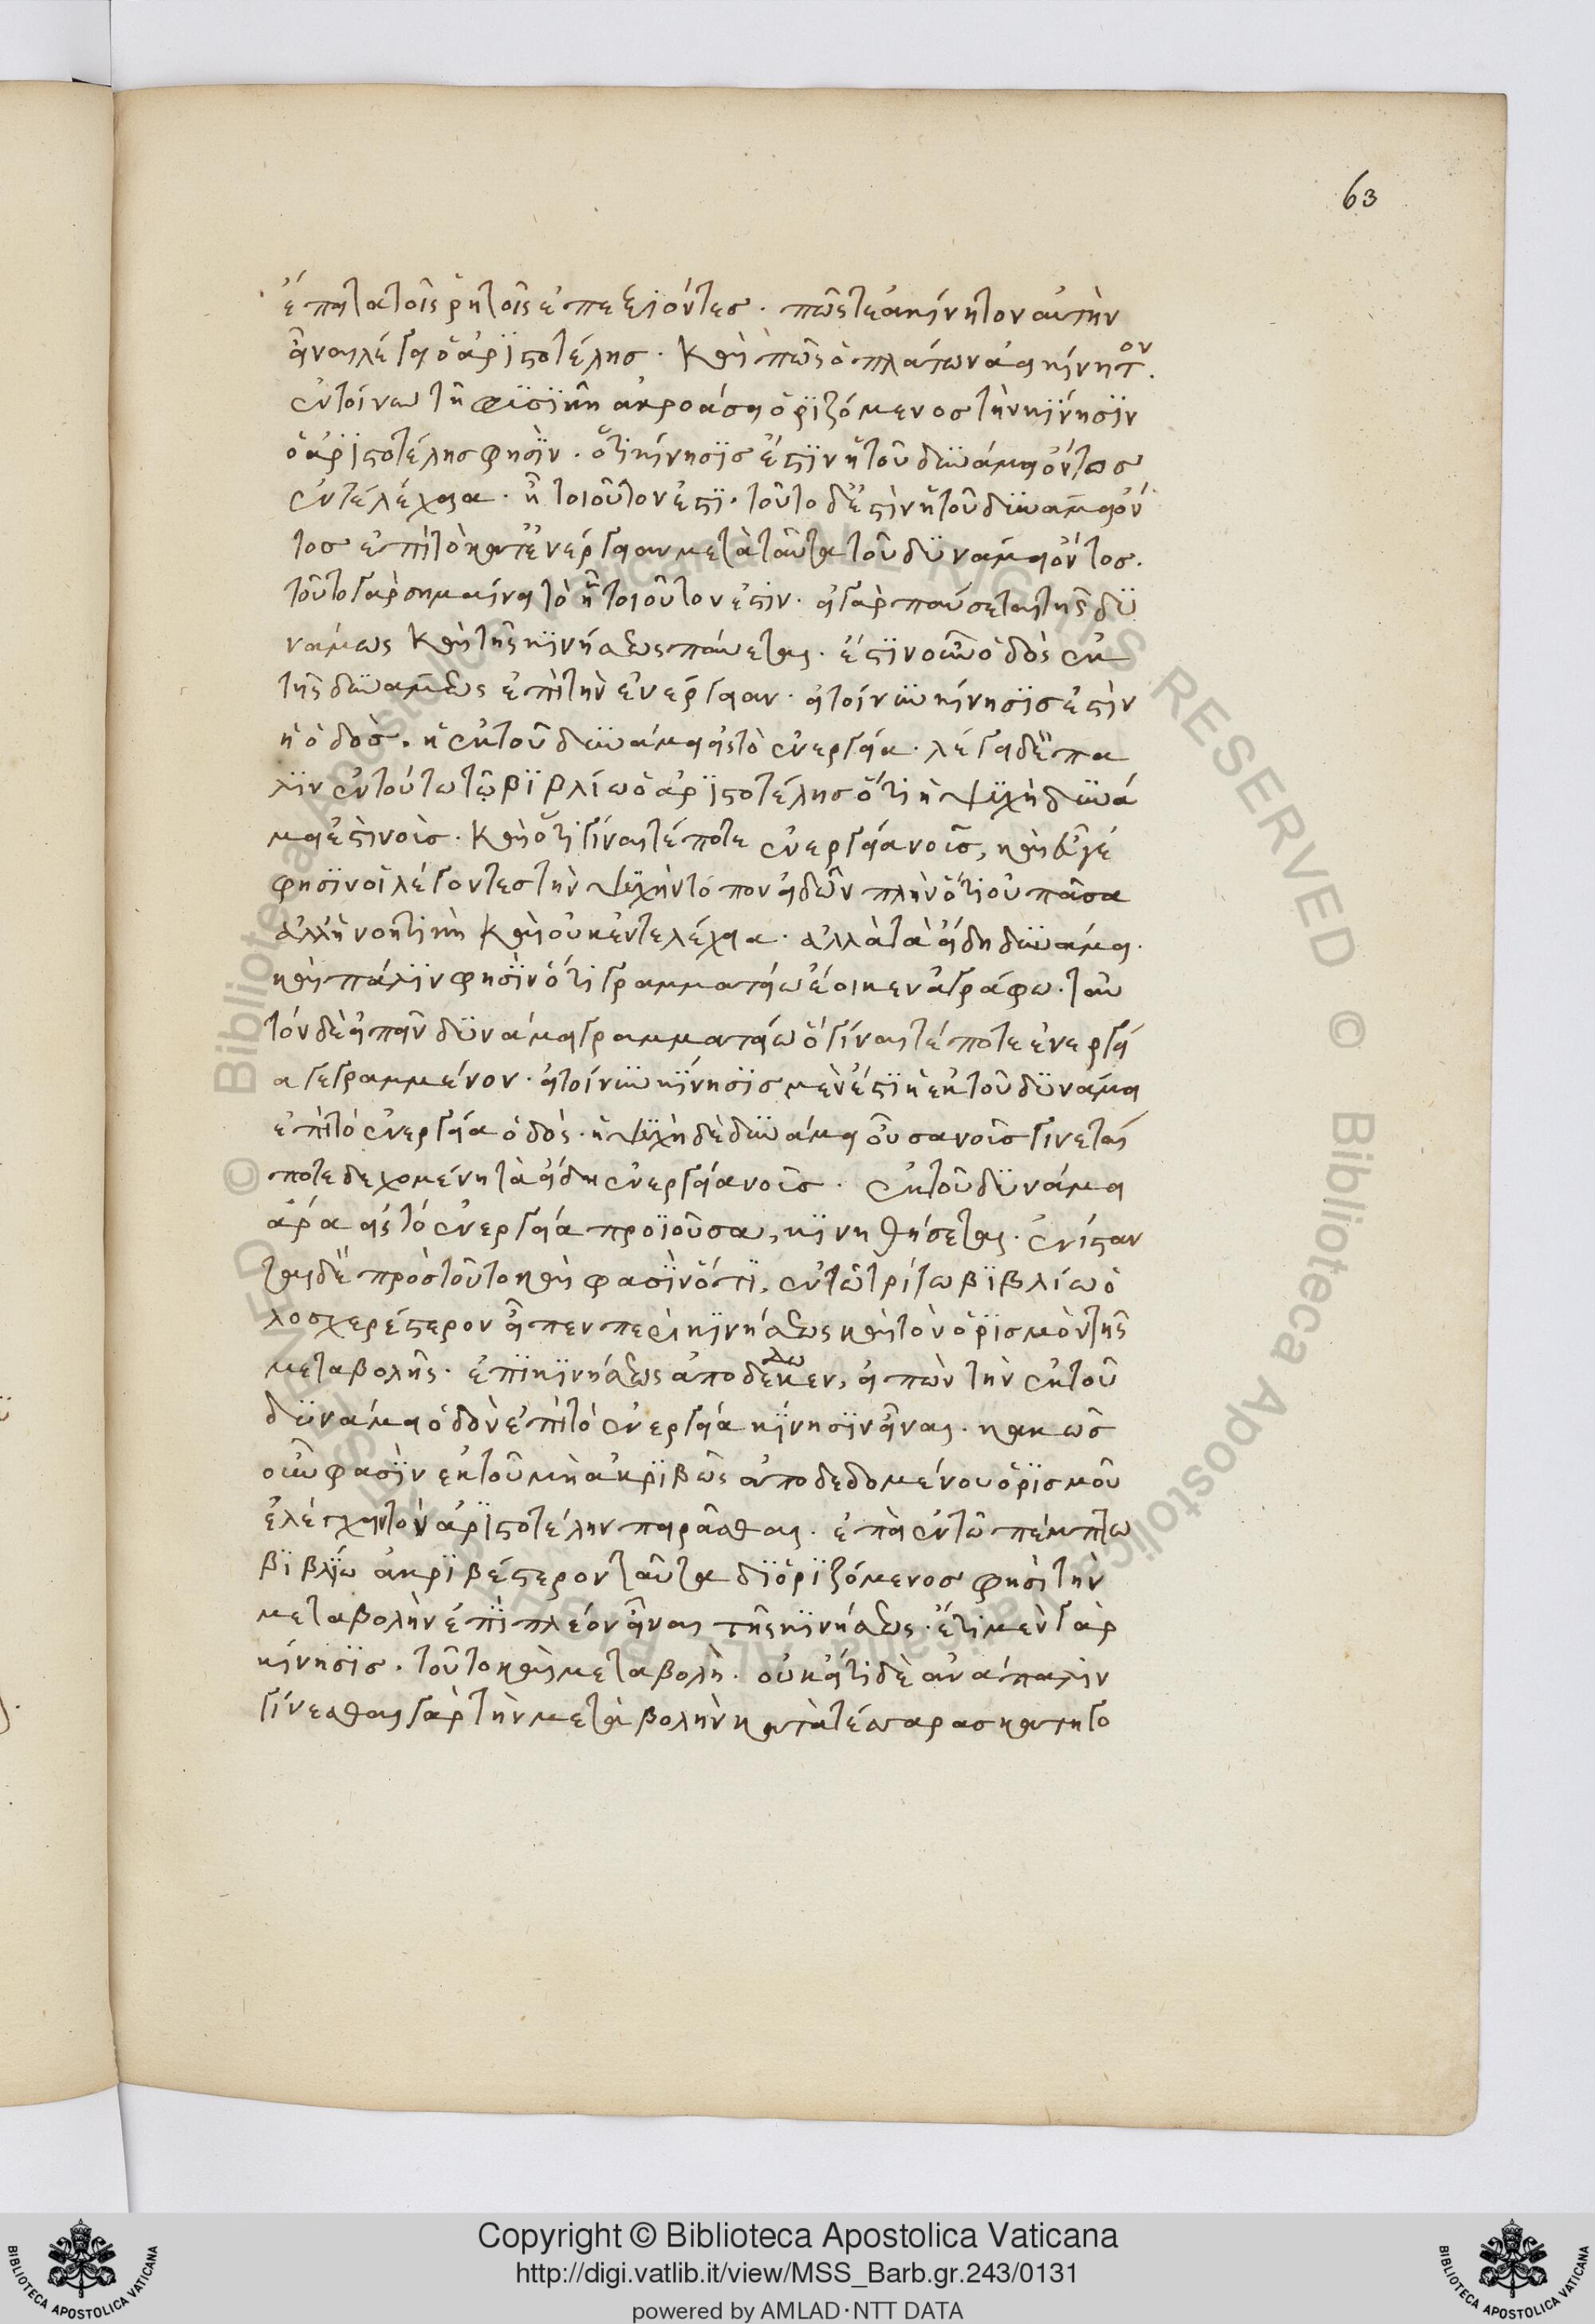 63
ἔπειτα τοῖς ῥητοῖς ἐπεξιόντες. πῶς τε ἀκίνητον αὐτὴν
εἶναι λέγει ὁ ἀρϊστοτέλησ. καὶ πῶς ὁ πλάτων ἀεικίνητον.
ἐν τοίνυν τῆ φϋσϊκῆ ἀκροάσει ὁρϊζόμενοσ τὴν κϊνησϊν
ὁ ἀρϊστοτέλησ φησῒν. ὅτι κίνησϊσ ἐστϊν ἡ τοῦ δϋνάμει ὄντοσ
ἐντελέχεια. ἧ τοιοῦτον ἐστϊ. τοῦτο δ' ἐστὶν ἡ τοῦ δϋνάμει ὄν
τοσ ἐπὶ τὸ κατ' ἐνέργειαν μετὰ ταῦτα τοῦ δϋνάμει ὄντος.
τοῦτο γὰρ σημαίνει τὸ ἧ τοιοῦτον ἐστιν. εἰ γὰρ παύσεται τῆς δϋ
νάμεως καὶ τῆς κϊνήσεως παύεται. ἐστϊν οὖν ὁδὸς ἐκ
τῆς δϋνάμεως ἐπὶ τὴν ἐνέργειαν. εἰ τοίνϋν κίνησϊσ ἐστὶν
ἡ ὁδοσ. ἡ ἐκ τοῦ δϋνάμει εἰς τὸ ἐνεργεία. λέγει δὲ πα
λϊν ἐν τούτω τῶ βϊβλίω ὁ ἀρϊστοτέλησ ὅτι ἡ ψϋχὴ δϋνά
μει ἐστὶ νοῦς. καὶ ὅτι γίναιτέ ποτε ἐνεργεία νοῦσ, καὶ εὖ γέ
φησϊν οἱ λέγοντεσ τὴν ψϋχὴν τόπον εἰδῶν πλὴν ὅτι οὐ πᾶσα
ἀλλ' ἡ νοητικὴ καὶ οὐκ ἐντελέχεια. ἀλλὰ τὰ εἴδη δϋνάμει.
καὶ πάλϊν φησϊν ὅτι γραμματείω ἔοικεν ἀγράφω. ταυ
τόν δὲ εἰπεῖν δϋνάμει γραμματείω ὃ γίναιτέ ποτε ἐνεργεί
α γεγραμμένον. εἰ τοίνϋν κϊνησϊσ μὲν ἐστϊ ἡ ἐκ τοῦ δϋνάμει
ἐπὶ τὸ ἐνεργεία ὁδὸς. ἡ ψϋχὴ δὲ δϋνάμει οὖσα νοῦσ γίνεταί
ποτε δεχομένη τὰ εἴδη ἐνεργεία νοῦσ. ἐκ τοῦ δϋνάμει
ἄρα εἰς τὸ ἐνεργεία προϊοῦσα, κϊνηθήσεται. ἐνίσταν
ται δὲ προσ τοῦτο καὶ φασῒν ὅτϊ, ἐν τῶ τρίτω βϊβλίω ὁ
λοσχερέστερον εἶπεν περὶ κϊνήσεως καὶ τὸν ὁρϊσμὸν τῆς
μεταβολῆς. ἐπϊ κϊνήσεως ἀποδέδωκεν, εἰπὼν τὴν ἐκ τοῦ
δϋνάμει ὁδὸν ἐπὶ τὸ ἐνεργεία κϊνησϊν εἶναι. κακῶσ
οὖν φασῒν ἐκ τοῦ μὴ ἀκρϊβῶς ἀποδεδομένου ὁρϊσμοῦ
ἐλέγχειν τὸν ἀρϊστοτέλην πειρᾶσθαι. ἐπεὶ ἐν τῶ πέμπτω
βϊβλίω ἀκρϊβέστερον ταῦτα δϊορϊζόμενοσ φησὶ τὴν
μεταβολὴν ἐπῒ πλέον εἶναι τῆς κϊνήσεως. ἔτι μὲν γὰρ
κίνησϊσ. τοῦτο καὶ μεταβολὴ. οὐκ ἔτι δὲ ἀνάπαλϊν
γίνεσθαι γὰρ τὴν μεταβολὴν κατὰ τέσσαρασ κατηγο